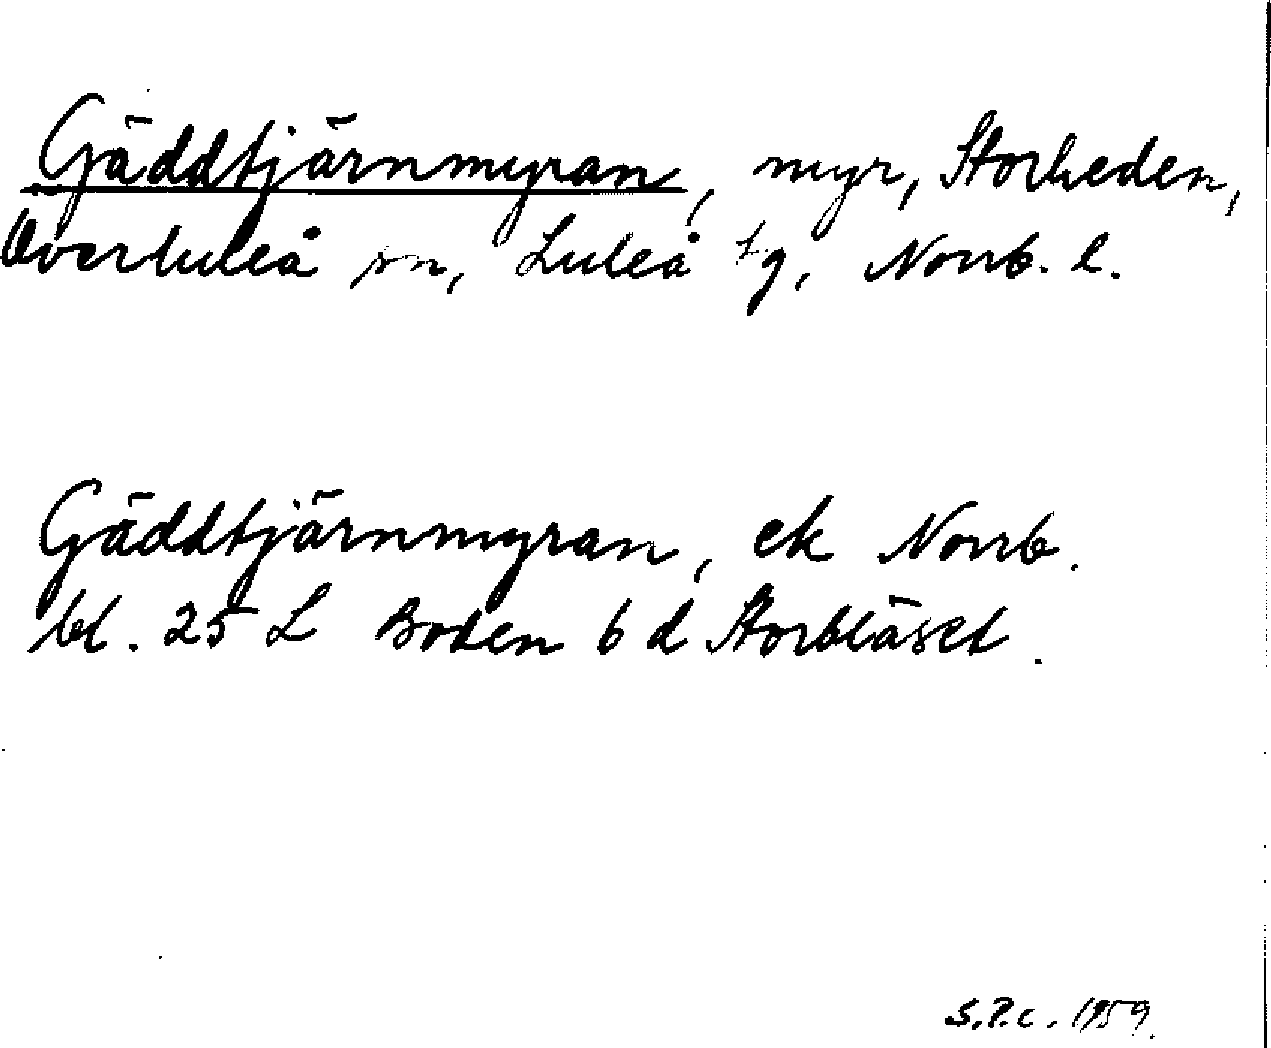 Gäddtjärnmyran, myr, Storheden,
Överluleå sn, Luleå tg, Norrb. l.
Gäddtjärnmyran, ek Norrb.
bl. 25 L Boden 6 d Storbläset.
S.P.C. 1959.